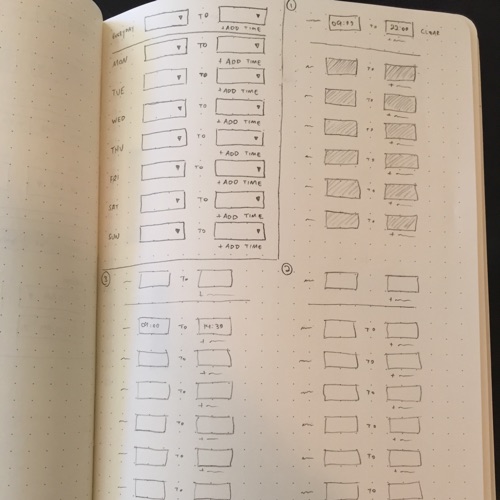 EVERYDAY TO
+ ADD TIME
MON TO
+ ADD TIME
TUE TO
+ ADD TIME
WED TO
+ ADD TIME
THU TO
+ ADD TIME
FRI TO
+ ADD TIME
SAT TO
+ ADD TIME
SUN TO
+ ADD TIME
1
09:00 TO 22:00 CLEAR
+
TO
+
TO
+
TO
+
TO
+
TO
+
TO
+
3
TO
TO 14:30
+
TO
+
TO
+
TO
+
TO
+
TO
2
TO
+
TO
+
TO
+
TO
+
TO
+
TO
+
TO